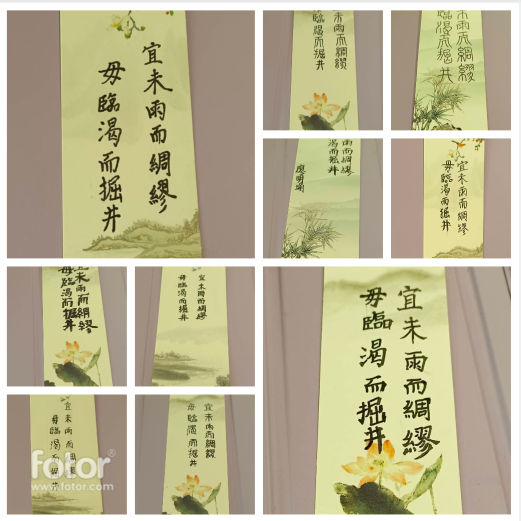 宜未雨而綢繆
毋臨渴而掘井
未雨而綢繆
臨渴而掘井
未雨而綢繆
臨渴而掘井
雨而綢繆
渴而掘井
宜未雨而綢繆
毋臨渴而掘井
宜未雨而綢繆
毋臨渴而掘井
宜未雨而綢繆
毋臨渴而掘井
宜未雨而綢繆
毋臨渴而掘井
宜未雨而綢繆
毋臨渴而掘井
fotor
www.fotor.com
宜未雨而綢繆
毋臨渴而掘井